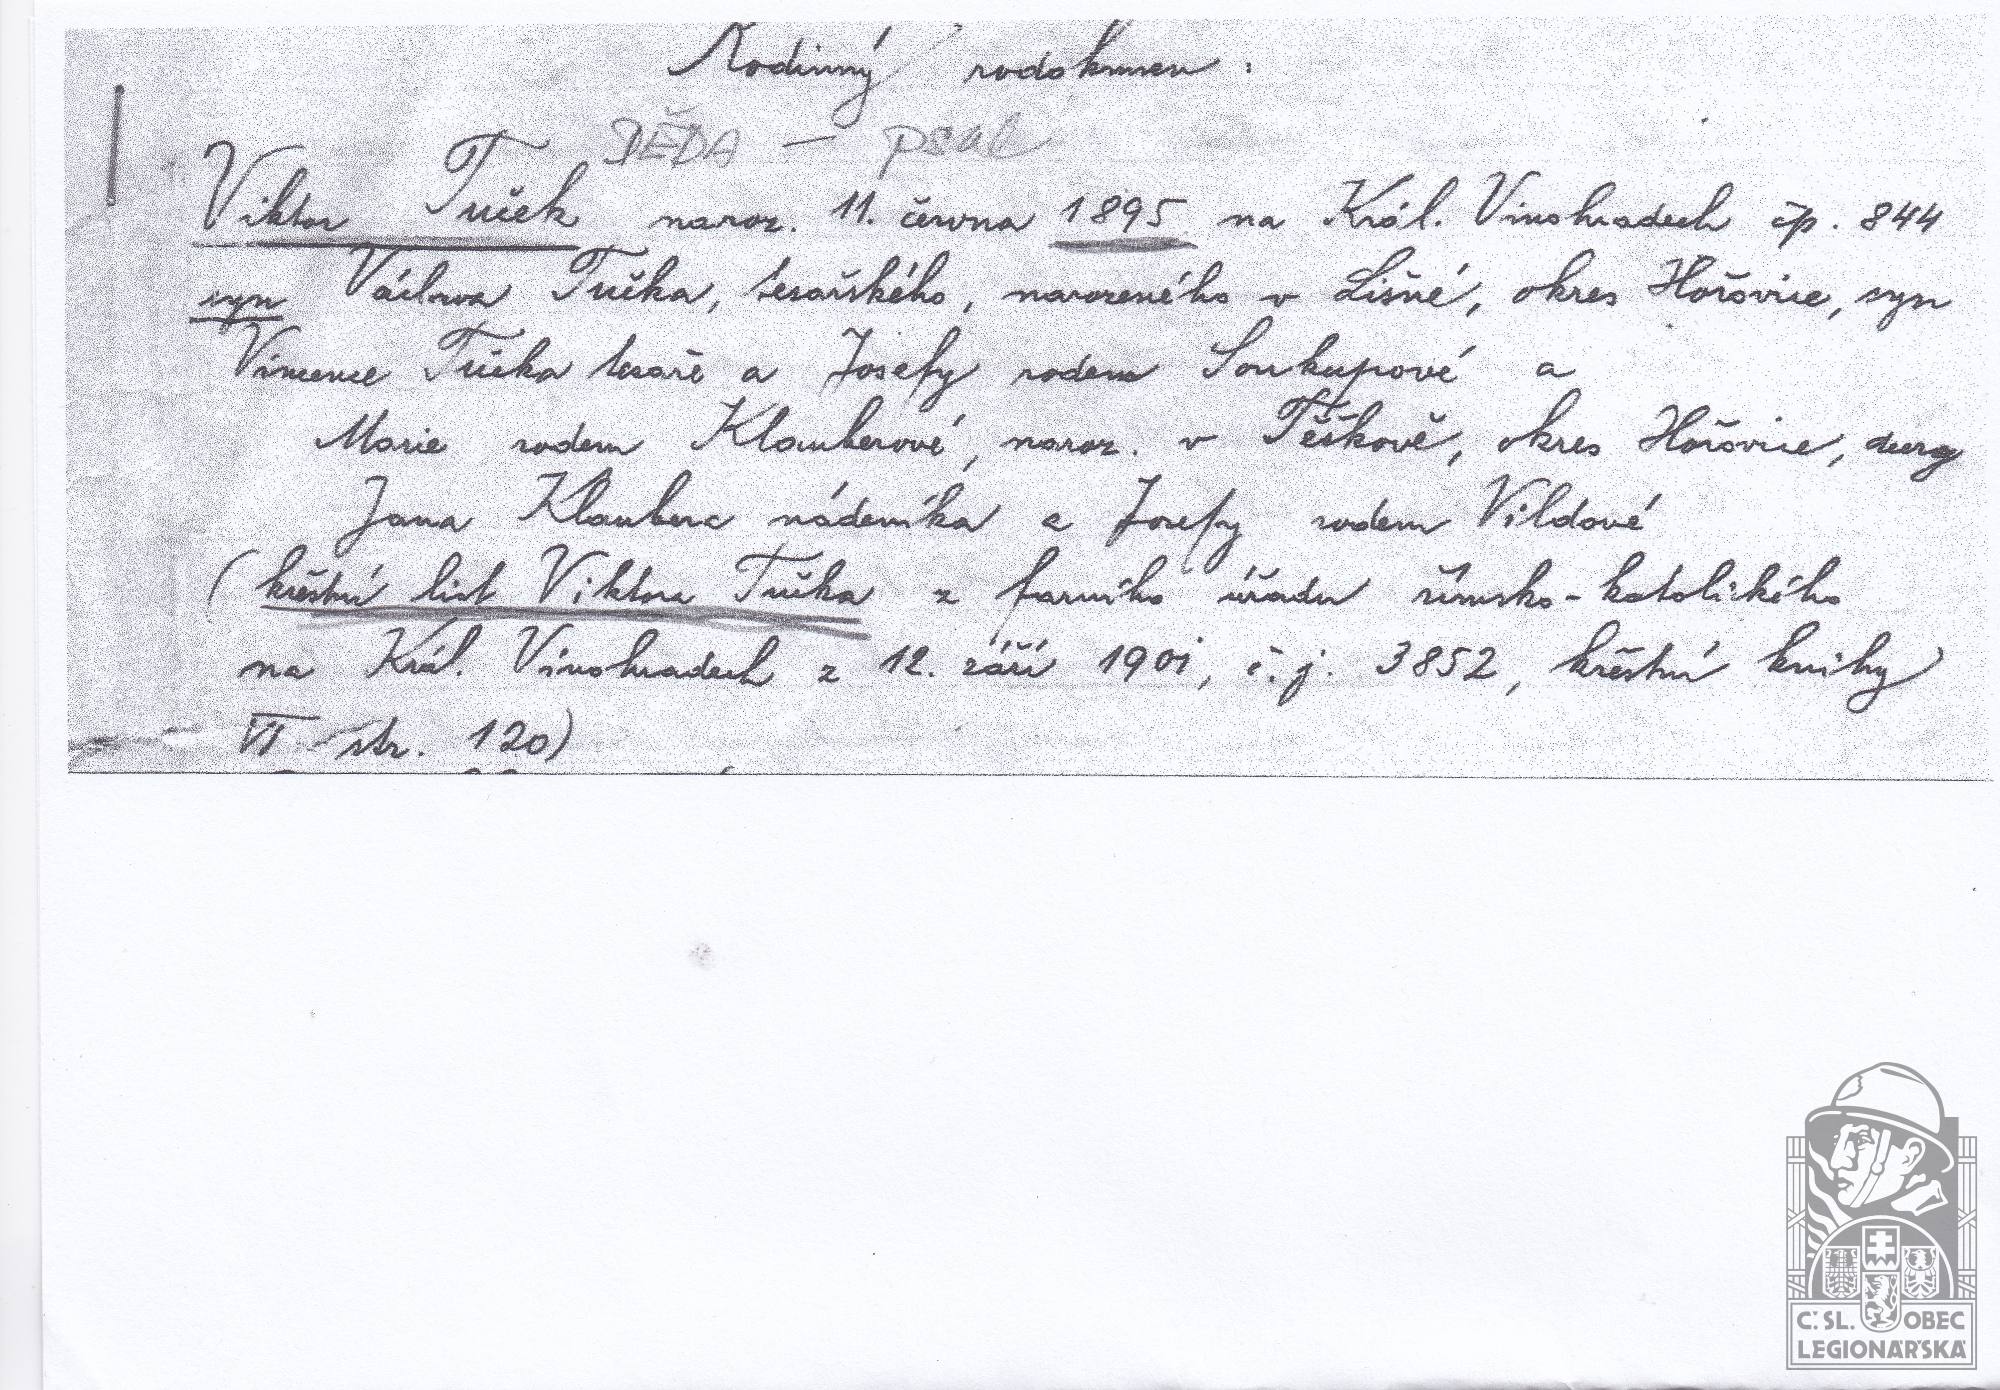 Rodinný rodokmen :
DĚDA — psal
Viktor Tuček naroz. 11. června 1895 na Král. Vinohradech čp. 844
syn Václava Tučka, tesařského, narozeného v Lišné, okres Hořovice, syn
Vincence Tučka tesaře a Josefy rodem Soukupové a
Marie rodem Klauberové, naroz. v Těškově, okres Hořovice, dcery
Jana Klaubera nádeníka a Josefy rodem Vildové
(křestní list Viktora Tučka z farního úřadu římsko-katolického
na Král. Vinohradech z 12. září 1901, č.j. 3852, křestní knihy
VI str. 120)
Č. SL. OBEC
LEGIONÁŘSKÁ